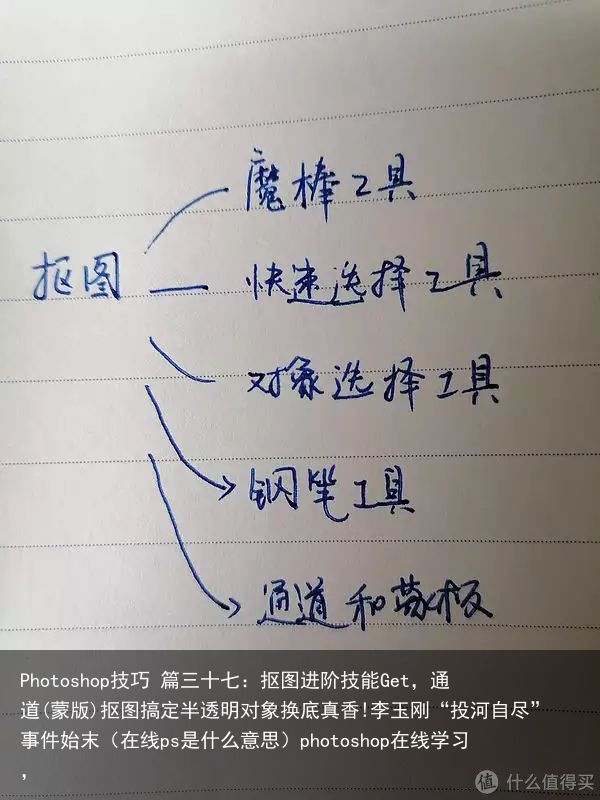 魔棒工具
抠图
快速选择工具
对象选择工具
钢笔工具
通道和蒙板
Photoshop技巧 篇三十七：抠图进阶技能Get，通
道(蒙版)抠图搞定半透明对象换底真香!李玉刚“投河自尽”
事件始末（在线ps是什么意思）photoshop在线学习
，
值 什么值得买